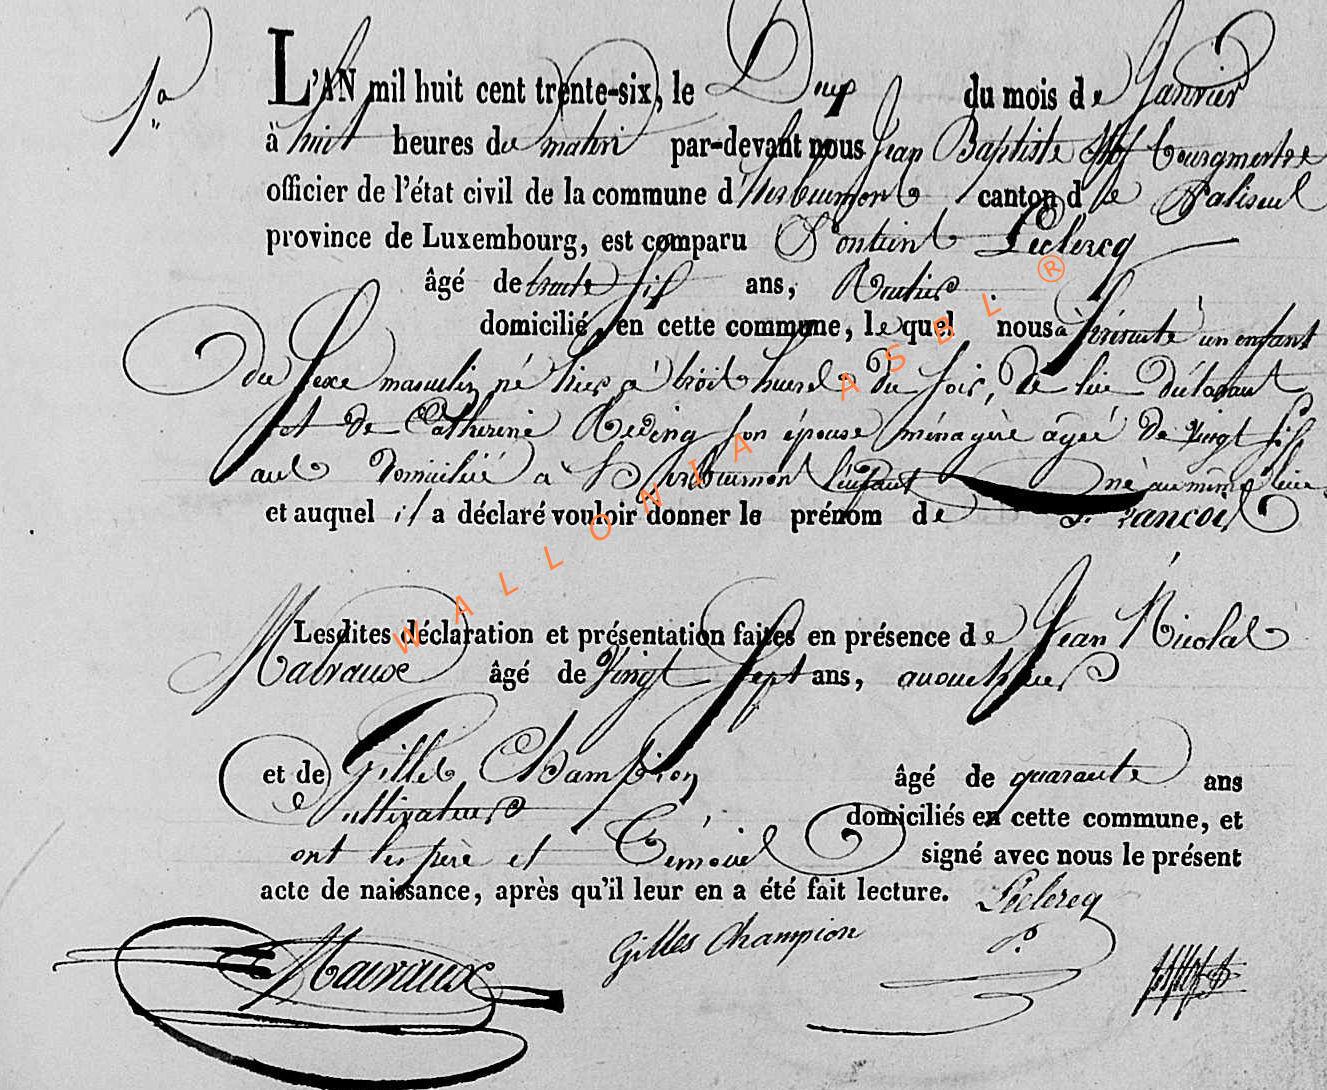 1.
L'AN mil huit cent trente-six, le Deux du mois de Janvier
à huit heures du matin par-devant nous Jean Baptiste bourgmestre
officier de l'état civil de la commune d'herbeumont canton de Paliseul
province de Luxembourg, est comparu Pontient Leclercq
âgé de trente six ans,
domicilié en cette commune, lequel nous à présenté un enfant
du sexe masculin né hier à trois heures du soir, de lui déclarant
et de Catherine Reding son épouse ménagère âgée de vingt six
ans domiciliée à herbeumont l'enfant né au même lieu
et auquel il a déclaré vouloir donner le prénom de François
Lesdites déclaration et présentation faites en présence de Jean Nicolas
Mabraux âgé de Vingt Sept ans,
et de Gilles Champion âgé de quarante ans
Cultivateurs domiciliés en cette commune, et
ont les père et Témoins signé avec nous le présent
acte de naissance, après qu'il leur en a été fait lecture. Leclercq
Mabraux Gilles Champion
WALLONIA ASBL ®